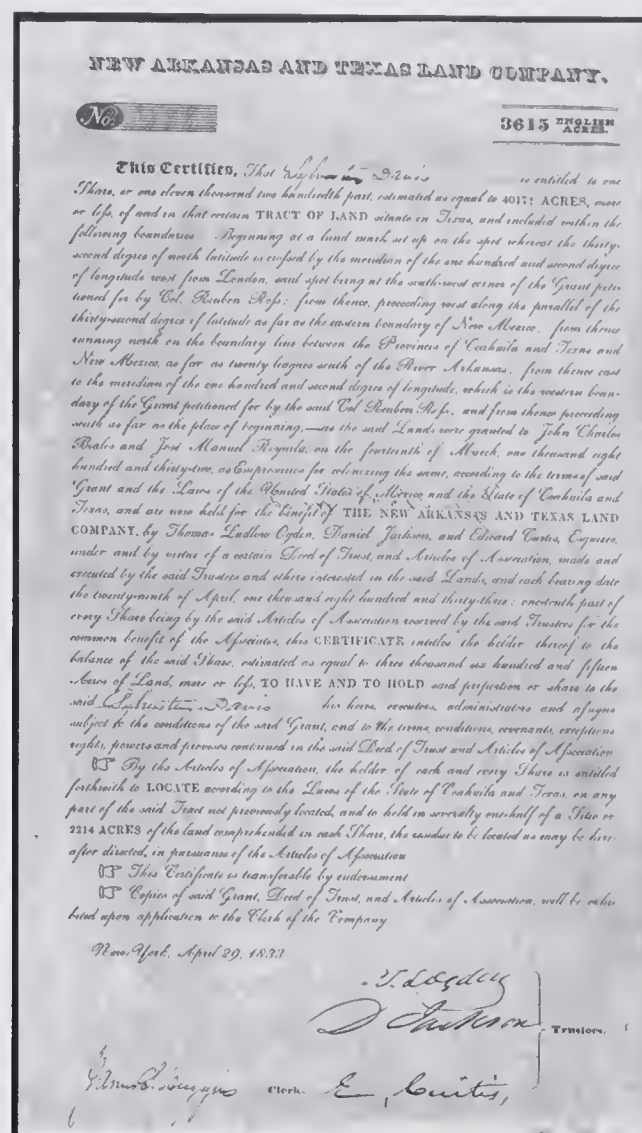 NEW ARKANSAS AND TEXAS LAND COMPANY.
No.
3615 ENGLISH ACRES.
This Certifies, That Sylvester Davis is entitled to one
Share, or one eleven thousand two hundredth part, estimated as equal to 4017½ ACRES, more
or less, of and in that certain TRACT OF LAND situate in Texas, and included within the
following boundaries Beginning at a land mark set up on the spot whereat the thirty-
second degree of north latitude is crossed by the meridian of the one hundred and second degree
of longitude west from London, said spot being at the south-west corner of the Grant peti-
tioned for by Col. Reuben Ross; from thence, proceeding west along the parallel of the
thirty-second degree of latitude as far as the eastern boundary of New Mexico, from thence
running north on the boundary line between the Provinces of Coahuila and Texas and
New Mexico, as far as twenty leagues south of the River Arkansas; from thence east
to the meridian of the one hundred and second degree of longitude, which is the western boun-
dary of the Grant petitioned for by the said Col Reuben Ross, and from thence proceeding
south as far as the place of beginning,—as the said Lands were granted to John Charles
Beales and José Manuel Royuela, on the fourteenth of March, one thousand eight
hundred and thirty-two, as Empresarios for colonizing the same, according to the terms of said
Grant and the Laws of the United States of Mexico and the State of Coahuila and
Texas, and are now held for the benefit of THE NEW ARKANSAS AND TEXAS LAND
COMPANY, by Thomas Ludlow Ogden, Daniel Jackson, and Edward Curtis, Esquires,
under and by virtue of a certain Deed of Trust, and Articles of Association, made and
executed by the said Trustees and others interested in the said Lands, and each bearing date
the twenty-ninth of April, one thousand eight hundred and thirty-three; one tenth part of
every Share being by the said Articles of Association reserved by the said Trustees for the
common benefit of the Associates, this CERTIFICATE entitles the holder thereof to the
balance of the said Share, estimated as equal to three thousand six hundred and fifteen
Acres of Land, more or less, TO HAVE AND TO HOLD said proportion or share to the
said Sylvester Davis his heirs, executors, administrators and assigns
subject to the conditions of the said Grant, and to the terms, conditions, covenants, exceptions
rights, powers and provisoes contained in the said Deed of Trust and Articles of Association
☞ By the Articles of Association, the holder of each and every Share is entitled
forthwith to LOCATE according to the Laws of the State of Coahuila and Texas, on any
part of the said Tract not previously located, and to hold in severalty one-half of a Sitio or
2214 ACRES of the land comprehended in each Share, the residue to be located as may be here-
after directed, in pursuance of the Articles of Association
☞ This Certificate is transferable by endorsement
☞ Copies of said Grant, Deed of Trust, and Articles of Association, will be exhi-
bited upon application to the Clerk of the Company
New-York, April 29, 1833
T. L. Ogden
D Jackson Trustees.
Clerk. E, Curtis,